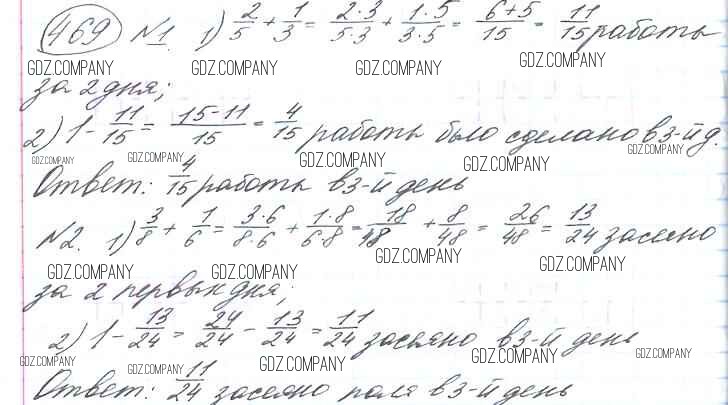 469 №1. 1) 2/5 + 1/3 = 2·3/5·3 + 1·5/3·5 = 6+5/15 = 11/15 работы
GDZ.COMPANY GDZ.COMPANY GDZ.COMPANY GDZ.COMPANY
за 2 дня;
2) 1 - 11/15 = 15-11/15 = 4/15 работы было сделано в 3-й д.
GDZ.COMPANY GDZ.COMPANY GDZ.COMPANY GDZ.COMPANY GDZ.COMPANY
Ответ: 4/15 работы в 3-й день
№2. 1) 3/8 + 1/6 = 3·6/8·6 + 1·8/6·8 = 18/48 + 8/48 = 26/48 = 13/24 засеяно
GDZ.COMPANY GDZ.COMPANY GDZ.COMPANY GDZ.COMPANY
за 2 первых дня;
2) 1 - 13/24 = 24/24 - 13/24 = 11/24 засеяно в 3-й день
GDZ.COMPANY GDZ.COMPANY GDZ.COMPANY GDZ.COMPANY GDZ.COMPANY
Ответ: 11/24 засеяно поля в 3-й день